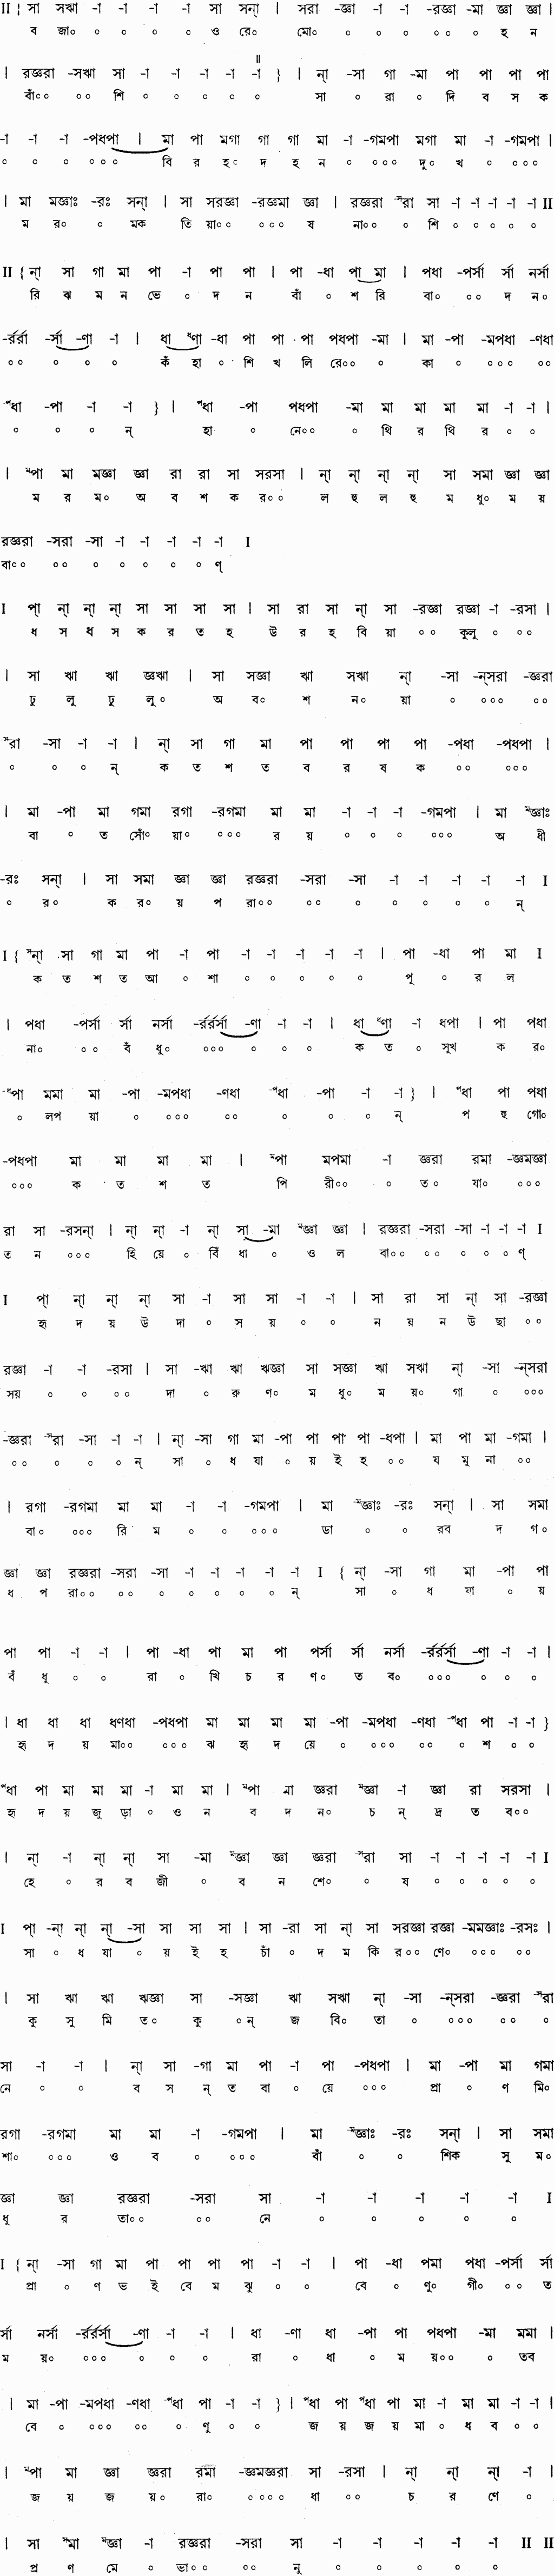 II { সা সঋা -া -া -া -া সা সন্া | সরা -জ্ঞা -া -া -রজ্ঞা -মা জ্ঞা জ্ঞা |
ব জা০ ০ ০ ০ ০ ও রে০ মো০ ০ ০ ০ ০০ ০ হ ন
| রজ্ঞরা -সঋা সা -া -া -া -া -া } | ন্া -সা গা -মা পা পা পা পা
বাঁ০০ ০০ শি ০ ০ ০ ০ ০ সা ০ রা ০ দি ব স ক
-া -া -া -পধপা | মা পা মগা গা গা মা -া -গমপা মগা মা -া -গমপা |
০ ০ ০ ০০০ বি র হ০ দ হ ন ০ ০০০ দু০ খ ০ ০০০
| মা মজ্ঞাঃ -রঃ সন্া | সা সরজ্ঞা -রজ্ঞমা জ্ঞা | রজ্ঞরা সরা সা -া -া -া -া -া II
ম র০ ০ মক তি য়া০০ ০০০ ষ না০০ ০ শি ০ ০ ০ ০ ০
II { ন্া সা গা মা পা -া পা পা | পা -ধা পা মা | পধা -পর্সা র্সা নর্সা
রি ঝ ম ন ভে ০ দ ন বাঁ ০ শ রি বা০ ০০ দ ন০
-র্রর্রা -র্সা -ণা -া | ধা ধণা -ধা পা পা পা পধপা -মা | মা -পা -মপধা -ণধা
০০ ০ ০ ০ কঁ হা ০ শি খ লি রে০০ ০ কা ০ ০০০ ০০
পধা -পা -া -া } | পধা -পা পধপা -মা মা মা মা মা -া -া |
০ ০ ০ ন্ হা ০ নে০০ ০ থি র থি র ০ ০
| মপা মা মজ্ঞা জ্ঞা রা রা সা সরসা | ন্া ন্া ন্া ন্া সা সমা জ্ঞা জ্ঞা
ম র ম০ অ ব শ ক র০০ ল হু ল হু ম ধু০ ম য়
রজ্ঞরা -সরা -সা -া -া -া -া -া I
বা০০ ০০ ০ ০ ০ ০ ০ ণ্
I প্া ন্া ন্া ন্া সা সা সা সা | সা রা সা ন্া সা -রজ্ঞা রজ্ঞা -া -রসা |
ধ স ধ স ক র ত হ উ র হ বি য়া ০০ কুলু ০ ০০
| সা ঋা ঋা জ্ঞঋা | সা সজ্ঞা ঋা সঋা ন্া -সা -ন্সরা -জ্ঞরা
ঢু লু ঢু লু০ অ ব০ শ ন০ য়া ০ ০০০ ০০
সরা -সা -া -া | ন্া সা গা মা পা পা পা পা -পধা -পধপা |
০ ০ ০ ন্ ক ত শ ত ব র ষ ক ০০ ০০০
| মা -পা মা গমা রগা -রগমা মা মা -া -া -া -গমপা | মা মজ্ঞাঃ
বা ০ ত সোঁ০ য়া০ ০০০ র য় ০ ০ ০ ০০০ অ ধী
-রঃ সন্া | সা সমা জ্ঞা জ্ঞা রজ্ঞরা -সরা -সা -া -া -া -া -া I
০ র০ ক র০ য় প রা০০ ০০ ০ ০ ০ ০ ০ ন্
I { সন্া সা গা মা পা -া পা -া -া -া -া -া | পা -ধা পা মা I
ক ত শ ত আ ০ শা ০ ০ ০ ০ ০ পূ ০ র ল
| পধা -পর্সা র্সা নর্সা -র্রর্রর্সা -ণা -া -া | ধা ধণা -া ধপা | পা পধা
না০ ০০ বঁ ধু০ ০০০ ০ ০ ০ ক ত ০ সুখ ক র০
ধপা মমা মা -পা -মপধা -ণধা পধা -পা -া -া } | পধা পা পধা
০ লপ য়া ০ ০০০ ০০ ০ ০ ০ ন্ প হু গো০
-পধপা মা মা মা মা | মপা মপমা -া জ্ঞরা রমা -জ্ঞমজ্ঞা
০০০ ক ত শ ত পি রী০০ ০ ত০ যা০ ০০০
রা সা -রসন্া | ন্া ন্া -া ন্া সা -মা মজ্ঞা জ্ঞা | রজ্ঞরা -সরা -সা -া -া -া I
ত ন ০০০ হি য়ে ০ বিঁ ধা ০ ও ল বা০০ ০০ ০ ০ ০ ণ্
I প্া ন্া ন্া ন্া সা -া সা সা -া -া | সা রা সা ন্া সা -রজ্ঞা
হৃ দ য় উ দা ০ স য় ০ ০ ন য় ন উ ছা ০০
রজ্ঞা -া -া -রসা | সা -ঋা ঋা ঋজ্ঞা সা সজ্ঞা ঋা সঋা ন্া -সা -ন্সরা
সয় ০ ০ ০০ দা ০ রু ণ০ ম ধু০ ম য়০ গা ০ ০০০
-জ্ঞরা সরা -সা -া -া | ন্া -সা গা মা -পা পা পা পা -ধপা | মা পা মা -গমা |
০০ ০ ০ ০ ন্ সা ০ ধ যা ০ য় ই হ ০০ য মু না ০০
| রগা -রগমা মা মা -া -া -গমপা | মা মজ্ঞাঃ -রঃ সন্া | সা সমা
বা০ ০০০ রি ম ০ ০ ০০০ ডা ০ ০ রব দ গ০
জ্ঞা জ্ঞা রজ্ঞরা -সরা -সা -া -া -া -া -া I { ন্া -সা গা মা -পা পা
ধ প রা০০ ০০ ০ ০ ০ ০ ০ ন্ সা ০ ধ যা ০ য়
পা পা -া -া | পা -ধা পা মা পা পর্সা র্সা নর্সা -র্রর্রর্সা -ণা -া -া |
বঁ ধু ০ ০ রা ০ খি চ র ণ০ ত ব০ ০০০ ০ ০ ০
| ধা ধা ধা ধণধা -পধপা মা মা মা মা -পা -মপধা -ণধা পধা পা -া -া }
হৃ দ য় মা০০ ০০০ ঝ হৃ দ য়ে ০ ০০০ ০০ ০ শ ০ ০
পধা পা মা মা মা -া মা মা | মপা মা জ্ঞরা মজ্ঞা -া জ্ঞা রা সরসা |
হৃ দ য় জু ড়া ০ ও ন ব দ ন০ চ ন্ দ্র ত ব০০
| ন্া -া ন্া ন্া সা -মা মজ্ঞা জ্ঞা জ্ঞরা সরা সা -া -া -া -া -া I
হে ০ র ব জী ০ ব ন শে০ ০ ষ ০ ০ ০ ০ ০
I প্া -ন্া ন্া ন্া -সা সা সা সা | সা -রা সা ন্া সা সরজ্ঞা রজ্ঞা -মমজ্ঞাঃ -রসঃ |
সা ০ ধ যা ০ য় ই হ চাঁ ০ দ ম কি র০০ ণে০ ০০০ ০০
| সা ঋা ঋা ঋজ্ঞা সা -সজ্ঞা ঋা সঋা ন্া -সা -ন্সরা -জ্ঞরা সরা
কু সু মি ত০ কু ০ন্ জ বি০ তা ০ ০০০ ০০ ০
সা -া -া | ন্া সা -গা মা পা -া পা -পধপা | মা -পা মা গমা
নে ০ ০ ব স ন্ ত বা ০ য়ে ০০০ প্রা ০ ণ মি০
রগা -রগমা মা মা -া -গমপা | মা মজ্ঞাঃ -রঃ সন্া | সা সমা
শা০ ০০০ ও ব ০ ০০০ বাঁ ০ ০ শিক সু ম০
জ্ঞা জ্ঞা রজ্ঞরা -সরা সা -া -া -া -া -া I
ধু র তা০০ ০০ নে ০ ০ ০ ০ ০
I { ন্া -সা গা মা পা পা পা পা -া -া | পা -ধা পমা পধা -পর্সা র্সা
প্রা ০ ণ ভ ই বে ম ঝু ০ ০ বে ০ ণু০ গী০ ০০ ত
র্সা নর্সা -র্রর্রর্সা -ণা -া -া | ধা -ণা ধা -পা পা পধপা -মা মমা |
ম য়০ ০০০ ০ ০ ০ রা ০ ধা ০ ম য়০০ ০ তব
| মা -পা -মপধা -ণধা পধা পা -া -া } | পধা পা পধা পা মা -া মা মা -া -া |
বে ০ ০০০ ০০ ০ ণু ০ ০ জ য় জ য় মা ০ ধ ব ০ ০
| মপা মা জ্ঞা জ্ঞরা রমা -জ্ঞমজ্ঞরা সা -রসা | ন্া ন্া ন্া -া |
জ য় জ য়০ রা০ ০০০০ ধা ০০ চ র ণে ০
| সা সমা মজ্ঞা -া রজ্ঞরা -সরা সা -া -া -া -া -া II II
প্র ণ মে ০ ভা০০ ০০ নু ০ ০ ০ ০ ০